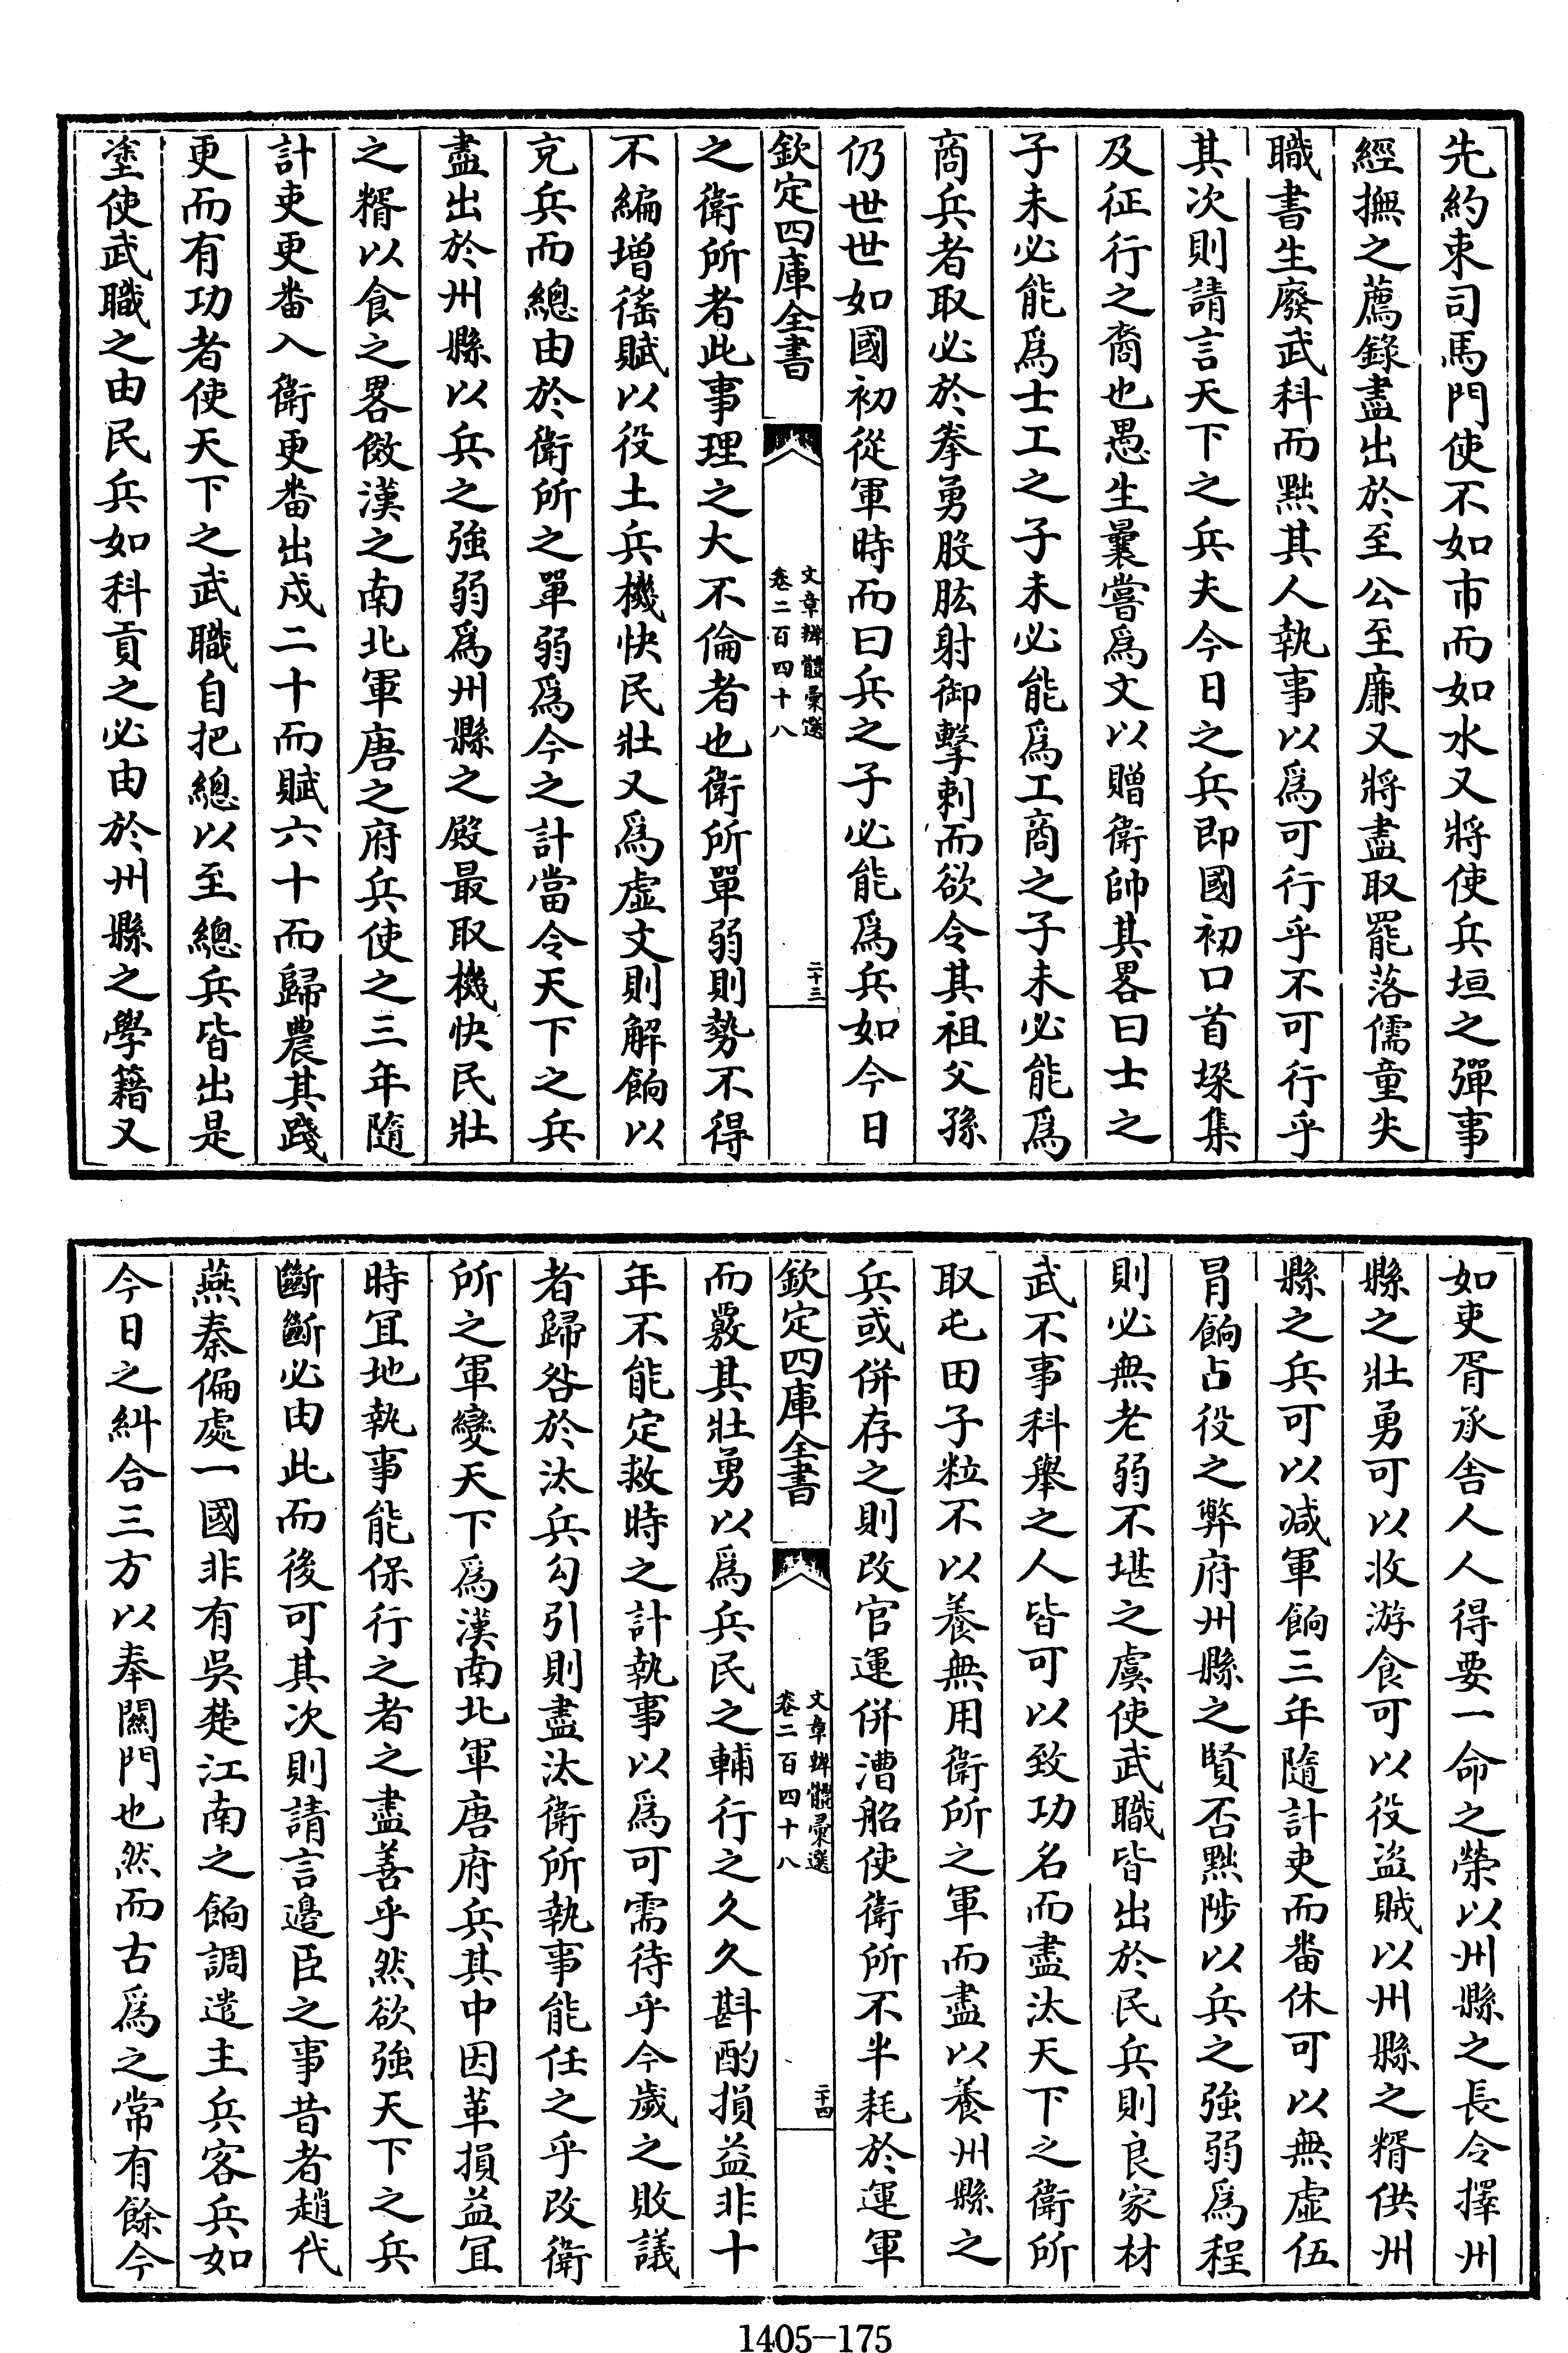 先約束司馬門使不如市而如水又將使兵垣之彈事
經撫之薦錄盡出於至公至廉又將盡取罷落儒童失
職書生廢武科而黜其人執事以為可行乎不可行乎
其次則請言天下之兵夫今日之兵即國初口首垜集
及征行之裔也愚生曩嘗為文以贈衛帥其畧曰士之
子未必能為士工之子未必能為工商之子未必能為
商兵者取必於拳勇股肱射御擊刺而欲令其祖父孫
仍世世如國初從軍時而曰兵之子必能為兵如今日
欽定四庫全書
文章辨體彚選
卷二百四十八
二十三
之衛所者此事理之大不倫者也衛所單弱則勢不得
不編增徭賦以役土兵機快民壯又為虛文則解餉以
充兵而總由於衛所之單弱為今之計當令天下之兵
盡出於州縣以兵之強弱為州縣之殿最取機快民壯
之糈以食之畧倣漢之南北軍唐之府兵使之三年隨
計吏更畨入衛更畨出戍二十而賦六十而歸農其踐
更而有功者使天下之武職自把總以至總兵皆出是
塗使武職之由民兵如科貢之必由於州縣之學籍又
如吏胥承舍人人得要一命之榮以州縣之長令擇州
縣之壯勇可以收游食可以役盜賊以州縣之糈供州
縣之兵可以减軍餉三年隨計吏而畨休可以無虛伍
冐餉占役之弊府州縣之賢否黜陟以兵之強弱為程
則必無老弱不堪之虞使武職皆出於民兵則良家材
武不事科舉之人皆可以致功名而盡汰天下之衛所
取屯田子粒不以養無用衛所之軍而盡以養州縣之
兵或併存之則改官運併漕船使衛所不半耗於運軍
欽定四庫全書
文章辨體彚選
卷二百四十八
二十四
而覈其壯勇以為兵民之輔行之久久斟酌損益非十
年不能定救時之計執事以為可需待乎今歲之敗議
者歸咎於汰兵勾引則盡汰衛所執事能任之乎改衛
所之軍變天下為漢南北軍唐府兵其中因革損益冝
時冝地執事能保行之者之盡善乎然欲強天下之兵
斷斷必由此而後可其次則請言邊臣之事昔者趙代
燕秦偏處一國非有吳楚江南之餉調遣主兵客兵如
今日之糾合三方以奉關門也然而古為之常有餘今
1405-175